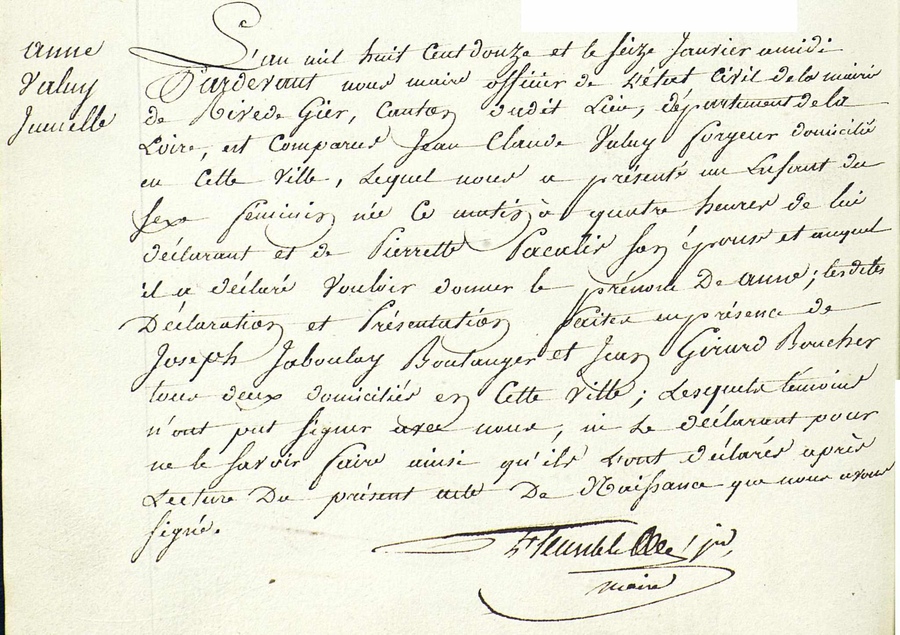 anne
Valuy
Jumelle
L'an mil huit cent douze et le seize Janvier a midi
Pardevant nous maire officier de L'état civil de la mairie
de Rivedegier, Canton dudit Lieu, département de la
Loire, est Comparue Jean Claude Valuy forgeur domicilié
en Cette Ville, Lequel nous a présenté un Enfant du
sexe féminin née Ce matin à quatre heures de lui
déclarant et de Pierrette Pacalis son épouse et auquel
il a déclaré Vouloir donner le prénom De anne; lesdites
Déclaration et Présentation faites en présence de
Joseph Jaboulay Boulanger et Jean Girard Boucher
tous deux domiciliés en Cette Ville; Lesquels témoins
n'ont put signer avec nous, ni Le déclarant pour
ne le savoir faire ainsi qu'ils L'ont déclarés après
Lecture Du présent acte De Naissance que nous avons
signé.
maire